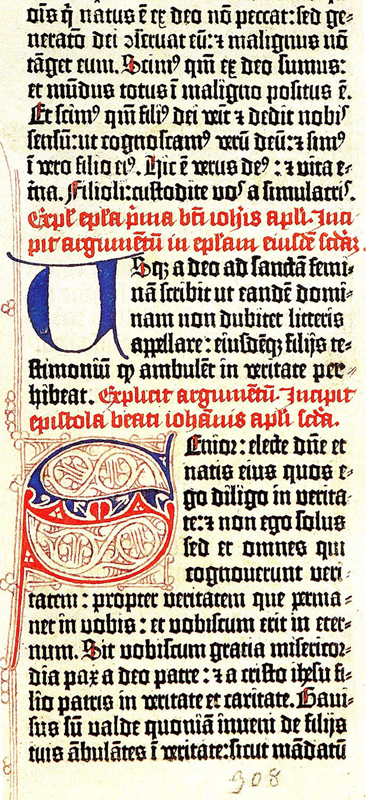 oı̄s q̄ natus ē ex deo nō peccat: sed ge⸗
neratō dei ↄseruat eū: ⁊ malignus nō
tāget eum. Scimꝰ qm̄ ex deo sumus:
et mūdus totus ī maligno positus ē.
Et scimꝰ qm̄ filiꝰ dei vēit ⁊ dedit nobis
sensū: ut cognoscamꝰ verū deū: ⁊ simꝰ
ī vero filio eiꝰ. Hic ē verus deꝰ: ⁊ vita e⸗
t̄na. Filioli: custodite vos a simulacris.
Explˢ epl̄a p̄ma bt̄i ioh̄is apl̄i. Inci⸗
pit argumētū in epl̄am eiusdē scd̄aꝫ.
Usqꝫ adeo ad sanctā femi⸗
nā scribit ut eandē domi⸗
nam non dubitet litteris
appellare: eiusdēqꝫ filijs te⸗
stimoniū ꝙ ambulēt in veritate per⸗
hibeat. Explicit argumētū. Incipit
epistola beati iohānis apl̄i scd̄a.
Senior: electe dn̄e et
natis eius quos e⸗
go diligo in verita⸗
te: ⁊ non ego solus
sed et omnes qui
cognouerunt veri⸗
tatem: propter veritatem que ꝑma⸗
net in vobis: et vobiscum erit in eter⸗
num. Sit vobiscum gratia misericor⸗
dia pax a deo patre: ⁊ a cristo ih̄esu fi⸗
lio patris in veritate et caritate. Gaui⸗
sus sū valde quoniā inueni de filijs
tuis ābulātes ī veritate: sicut mādatū
308